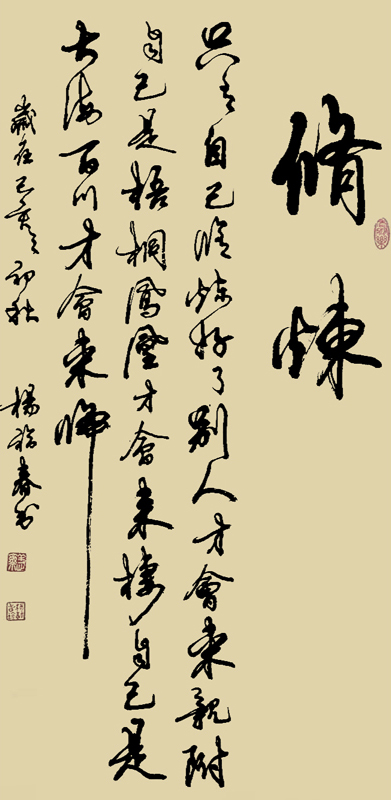 脩煉
只有自己脩煉好了别人才會來親附
自己是梧桐鳳凰才會來棲自己是
大海百川才會來歸
歲在己亥之初秋 楊春书